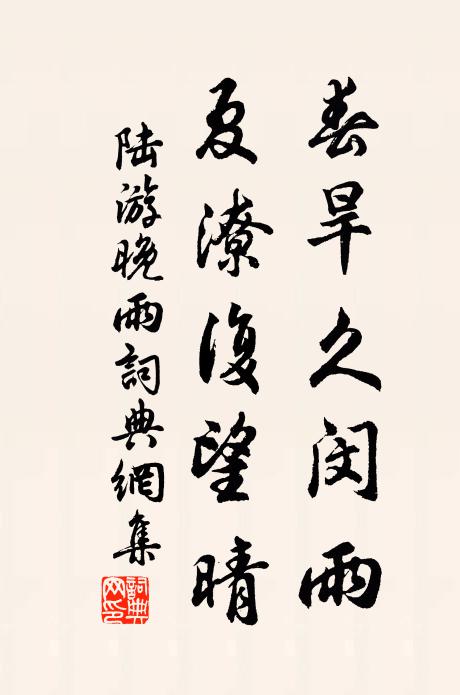 春旱久闵雨
夏潦復望晴
陆游晚雨詞典網集
詞典网印